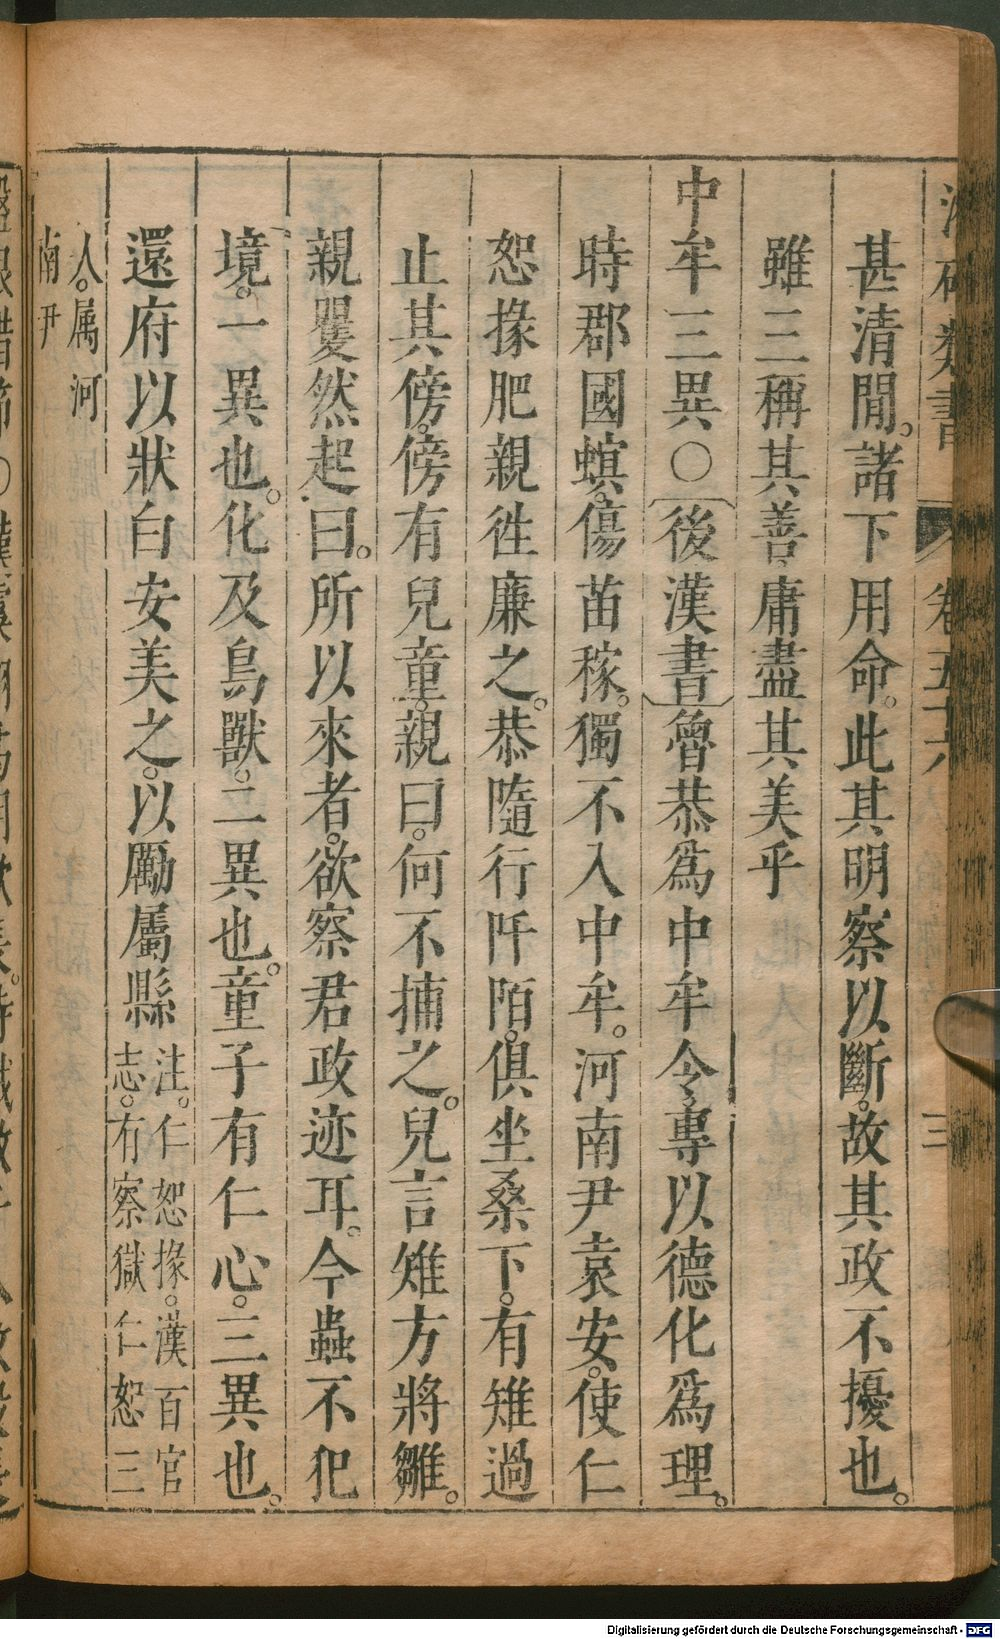 卷五十六 三
甚清閒。諸下用命。此其明察以斷。故其政不擾也。
雖三稱其善。庸盡其美乎
中牟三異〇後漢書魯恭爲中牟令。專以德化爲理。
時郡國螟。傷苗稼。獨不入中牟。河南尹袁安。使仁
恕掾肥親徃廉之。恭隨行阡陌。俱坐桑下。有雉過
止其傍。傍有兒童。親曰。何不捕之。兒言雉方將雛。
親瞿然起曰。所以來者。欲察君政迹耳。今蟲不犯
境。一異也。化及鳥獸。二異也。童子有仁心。三異也。
還府以狀白安美之。以勵屬縣注。仁恕掾。漢百官
志。有察獄仁恕三
人。属河
南尹
Digitalisierung gefördert durch die Deutsche Forschungsgemeinschaft - DFG